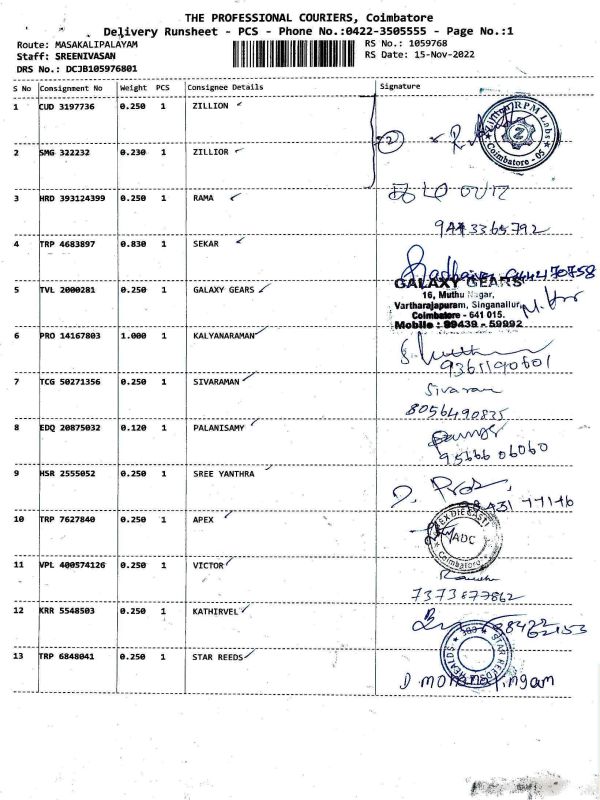 THE PROFESSIONAL COURIERS, Coimbatore
Delivery Runsheet - PCS - Phone No.:0422-3505555 - Page No.:1
Route: MASAKALIPALAYAM
Staff: SREENIVASAN
DRS No.: DCJB105976801
RS No.: 1059768
RS Date: 15-Nov-2022
S No Consignment No Weight PCS Consignee Details Signature
1 CUD 3197736 0.250 1 ZILLION
RPM Labs
Coimbatore - 05
2 SMG 322232 0.230 1 ZILLIOR
3 HRD 393124399 0.250 1 RAMA
4 TRP 4683897 0.830 1 SEKAR
5 TVL 2000281 0.250 1 GALAXY GEARS
GALAXY GEARS
16, Muthu Nagar,
Vartharajapuram, Singanallur,
Coimbatore - 641 015.
Mobile : 99439 - 59992
6 PRO 14167803 1.000 1 KALYANARAMAN
9361190601
7 TCG 50271356 0.250 1 SIVARAMAN
Sivaram
8056490835
8 EDQ 20875032 0.120 1 PALANISAMY
9566606060
9 HSR 2555052 0.250 1 SREE YANTHRA
10 TRP 7627840 0.250 1 APEX
ADC
Coimbatore
11 VPL 400574126 0.250 1 VICTOR
7373877862
12 KRR 5548503 0.250 1 KATHIRVEL
13 TRP 6848041 0.250 1 STAR REEDS
STAR REEDS